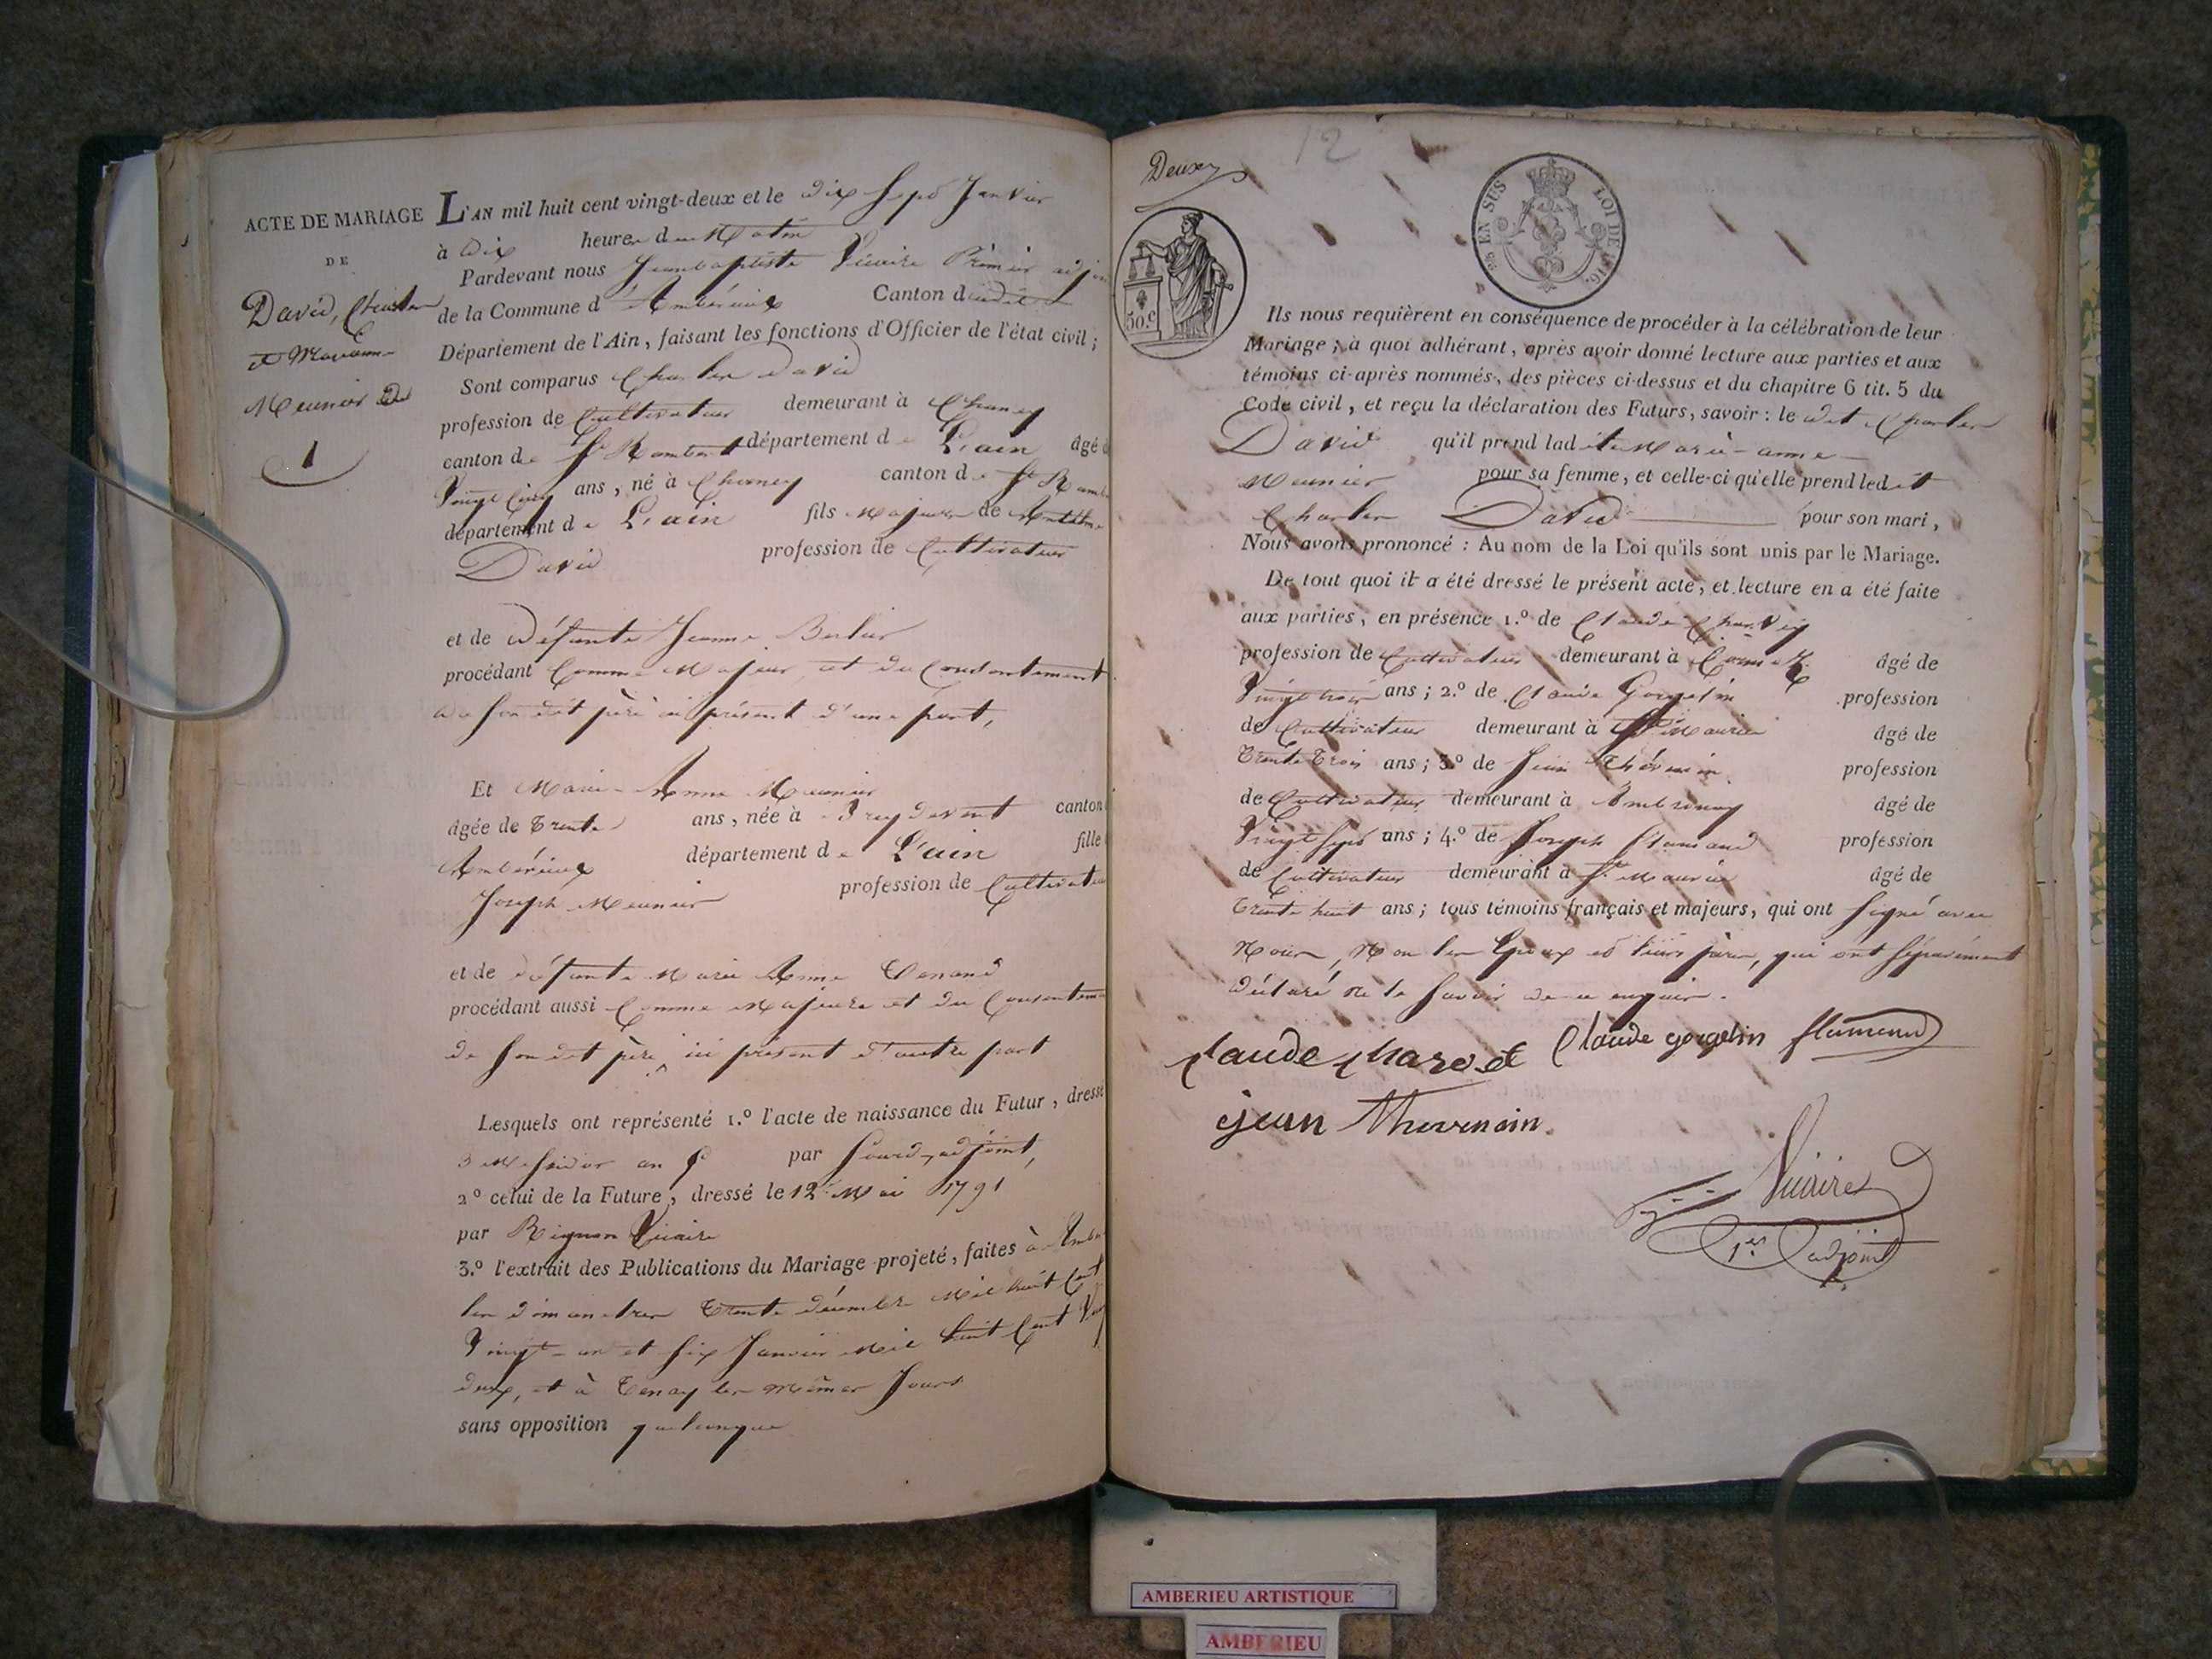 ACTE DE MARIAGE
DE
David, Charles
et Marianne
Meunier
1
L'AN mil huit cent vingt-deux et le dix sept Janvier
à dix heures du Matin
Pardevant nous Jeanbaptiste Vicaire Prémier adjoint
de la Commune d'Ambérieux Canton dudit
Département de l'Ain, faisant les fonctions d'Officier de l'état civil;
Sont comparus Charles David
profession de Cultivateur demeurant à
canton de St Rambert département de L'ain âgé de
Vingt Cinq ans, né à canton de St Ramb
département de L'ain fils Majeur de
David profession de Cultivateur
et de défunte Jeanne
procédant Comme Majeur, et du Consentement
de son dit père ici présent d'une part,
Et Marie-Anne Meunier
âgée de Trente ans, née à canton
Ambérieux département de L'ain fille
Joseph Meunier profession de Cultivateur
et de défunte Marie Anne
procédant aussi Comme Majeure et du Consentem
de son dit père, ici présent d'autre part
Lesquels ont représenté 1.º l'acte de naissance du Futur, dressé
3 Messidor an par adjoint,
2º celui de la Future, dressé le 12 Mai 1791
par Vicaire
3.º l'extrait des Publications du Mariage projeté, faites à Ambe
les dimanches Trente décembre Mil huit Cent
Vingt-un et six Janvier Mil huit Cent Vingt
deux, et à Tenay les mêmes Jours
sans opposition quelconque
Deux
12
EN SUS
LOI DE 1816.
50.c
Ils nous requièrent en conséquence de procéder à la célébration de leur
Mariage; à quoi adhérant, après avoir donné lecture aux parties et aux
témoins ci-après nommés, des pièces ci-dessus et du chapitre 6 tit. 5 du
Code civil, et reçu la déclaration des Futurs, savoir: le dit Charles
David qu'il prend ladite Marie-anne
Meunier pour sa femme, et celle-ci qu'elle prend ledit
Charles David pour son mari,
Nous avons prononcé: Au nom de la Loi qu'ils sont unis par le Mariage.
De tout quoi il a été dressé le présent acte, et lecture en a été faite
aux parties, en présence 1.º de Claude Charvet
profession de Cultivateur demeurant à âgé de
Vingt trois ans; 2.º de Claude Gorgelin profession
de Cultivateur demeurant à St Maurice âgé de
Trente Trois ans; 3.º de Jean Thévenin profession
de Cultivateur demeurant à Ambronay âgé de
Vingt sept ans; 4.º de Joseph Flamand profession
de Cultivateur demeurant à St Maurice âgé de
Trente huit ans; tous témoins français et majeurs, qui ont signé avec
Nous, Non les Epoux et leurs pères, qui ont séparément
déclaré ne le savoir de ce enquis.
Claude Charvet Claude gorgelin flamand
jean Thevenain.
Vicaire
1er adjoint
AMBERIEU ARTISTIQUE
AMBERIEU